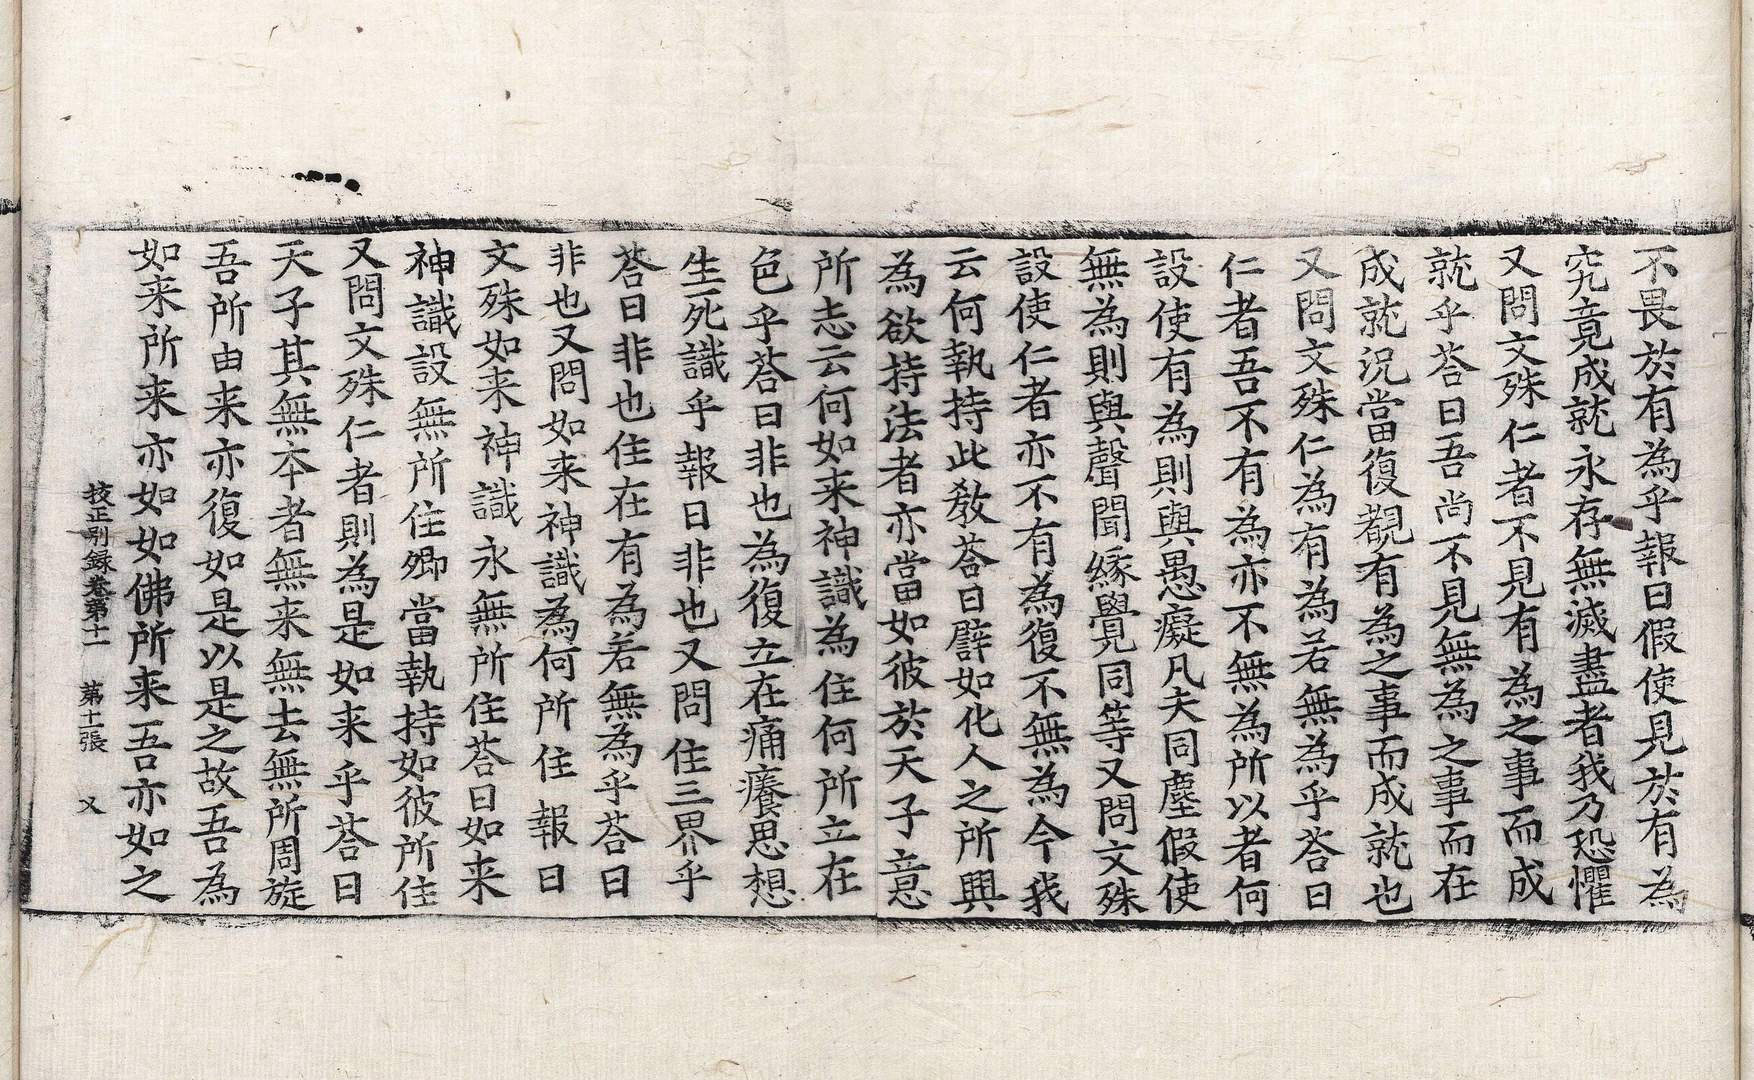 不畏於有為乎報曰假使見於有為
究竟成就永存無滅盡者我乃恐懼
又問文殊仁者不見有為之事而成
就乎荅曰吾尚不見無為之事而在
成就況當復覩有為之事而成就也
又問文殊仁為有為若無為乎荅曰
仁者吾不有為亦不無為所以者何
設使有為則與愚癡凡夫同塵假使
無為則與聲聞緣覺同等又問文殊
設使仁者亦不有為復不無為今我
云何執持此教荅曰譬如化人之所興
為欲持法者亦當如彼於天子意
所志云何如来神識為住何所立在
色乎荅曰非也為復立在痛癢思想
生死識乎報曰非也又問住三界乎
荅曰非也住在有為若無為乎荅曰
非也又問如来神識為何所住報曰
文殊如来神識永無所住荅曰如来
神識設無所住卿當執持如彼所住
又問文殊仁者則為是如来乎荅曰
天子其無夲者無来無去無所周旋
吾所由来亦復如是以是之故吾為
如来所来亦如如佛所来吾亦如之
挍正別録卷第十一 第十一張 义